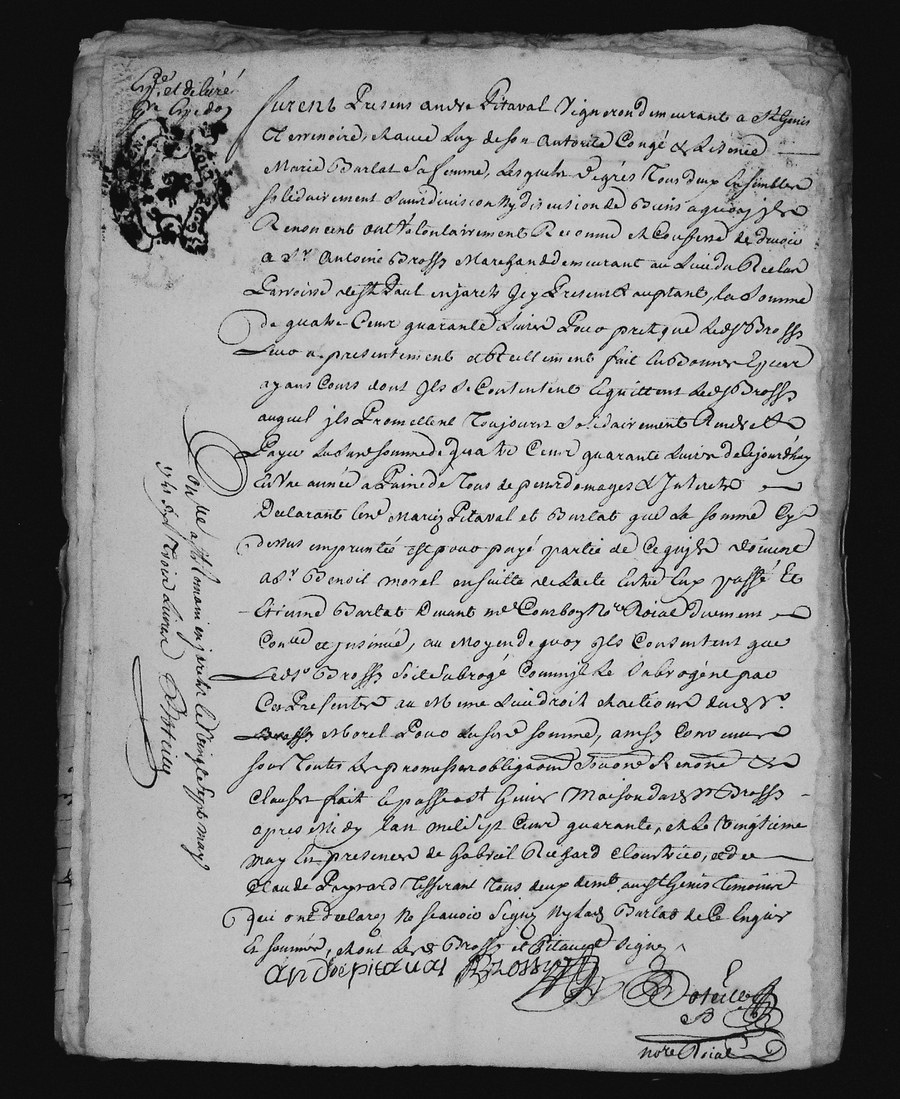 Exp.e et delivré
furent Presens andre Pitaval Vigneron demeurant a St Genis
Terrenoire, et avec luy de son Autorité Congé & Licence
Marie Barlat Sa femme, Lesquels de grés Tous deux Ensemble
solidairement Sans division Ny discution de Biens a quoy ils
Renoncent ont Volontairement Reconnu et Confessé de devoir
a Sr Antoine Brosse Marchand demeurant au Lieu du
Parroisse de St Paul en jarets Icy Present acceptant, la Somme
de quatre Cent quarante Livres Pour pret que Led Sr Brosse
Leur a presentement et Reellement fait En Bonnes Especes
ayans Cours dont Ils Se Contentent Et quittent Led Sr Brosse
auquel ils Promettent Toujours Solidairement Rendre et
Payer Lad. somme de quatre Cent quarante Livres de Ce jourdhuy
En Une année a Paine de Tous depens domages & Interets
Declarant Les Mariez Pitaval et Barlat que La Somme Cy
dessus empruntée Est pour payé partie de Ce quils doivent
a Sr Benoit Morel en suitte de Lacte Entre Eux passé Et
Etienne Barlat devant me Courbon Nore Roial Duement
Con.llé et jnsinué, au Moyen de quoy Ils Consentent que
Led Sr Brosse Soit Subrogé Comme ils Le Subrogent par
Ces Presentes au Meme Lieu droit et actions dud Sr
Morel Pour Lad. somme, ainsy Convenu
sous Toutes Les promesses obligaons Renons &
Clauses fait et passé a St Genis Maison dud Sr Brosse
apres Midy Lan mil Sept Cent quarante, et Le Vingtieme
may En presence de Gabriel Richard Cloutrier, et de
Claude Payrard Tisserant Tous deux demt aud St Genis Temoins
Qui ont declaré Ne Scavoir Signer Ny lad. Barlat de Ce Enquis
Et Sommée, et ont Led. Sr Brosse et Pitaval Signé
andre pitaval Brosse
nore Roial
Con.llé a St Romain en jarets Le Vingt Sept may
1740 Reçu Trois Livres